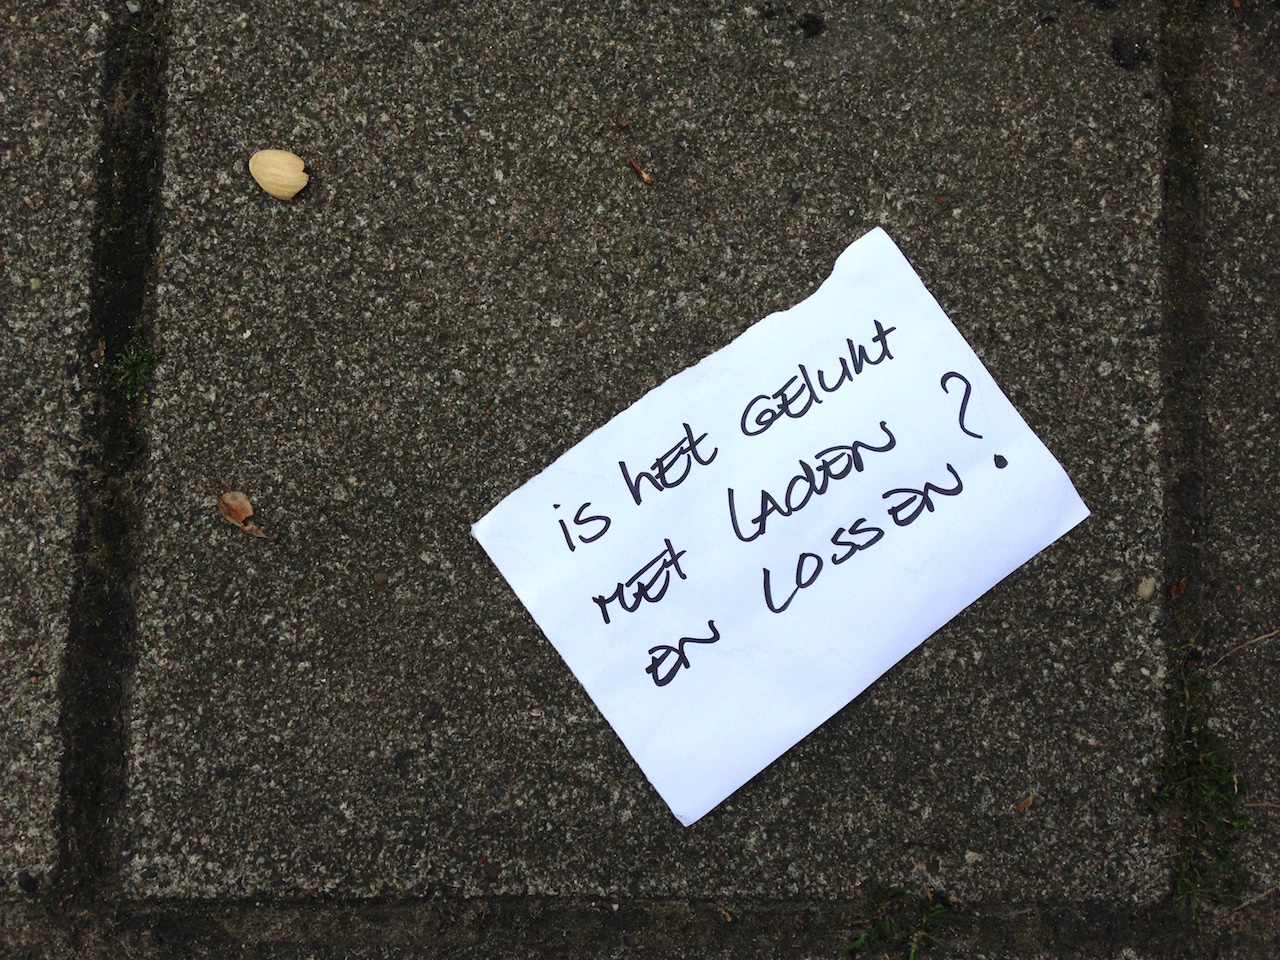 is hEt GElukt
MEt LAdEN ?
EN LOSSEN.